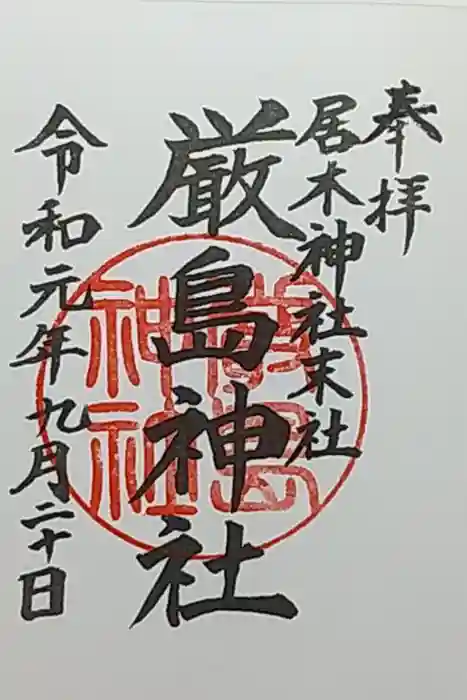 奉拝
居木神社末社
厳島神社
令和元年九月二十日
厳島
神社